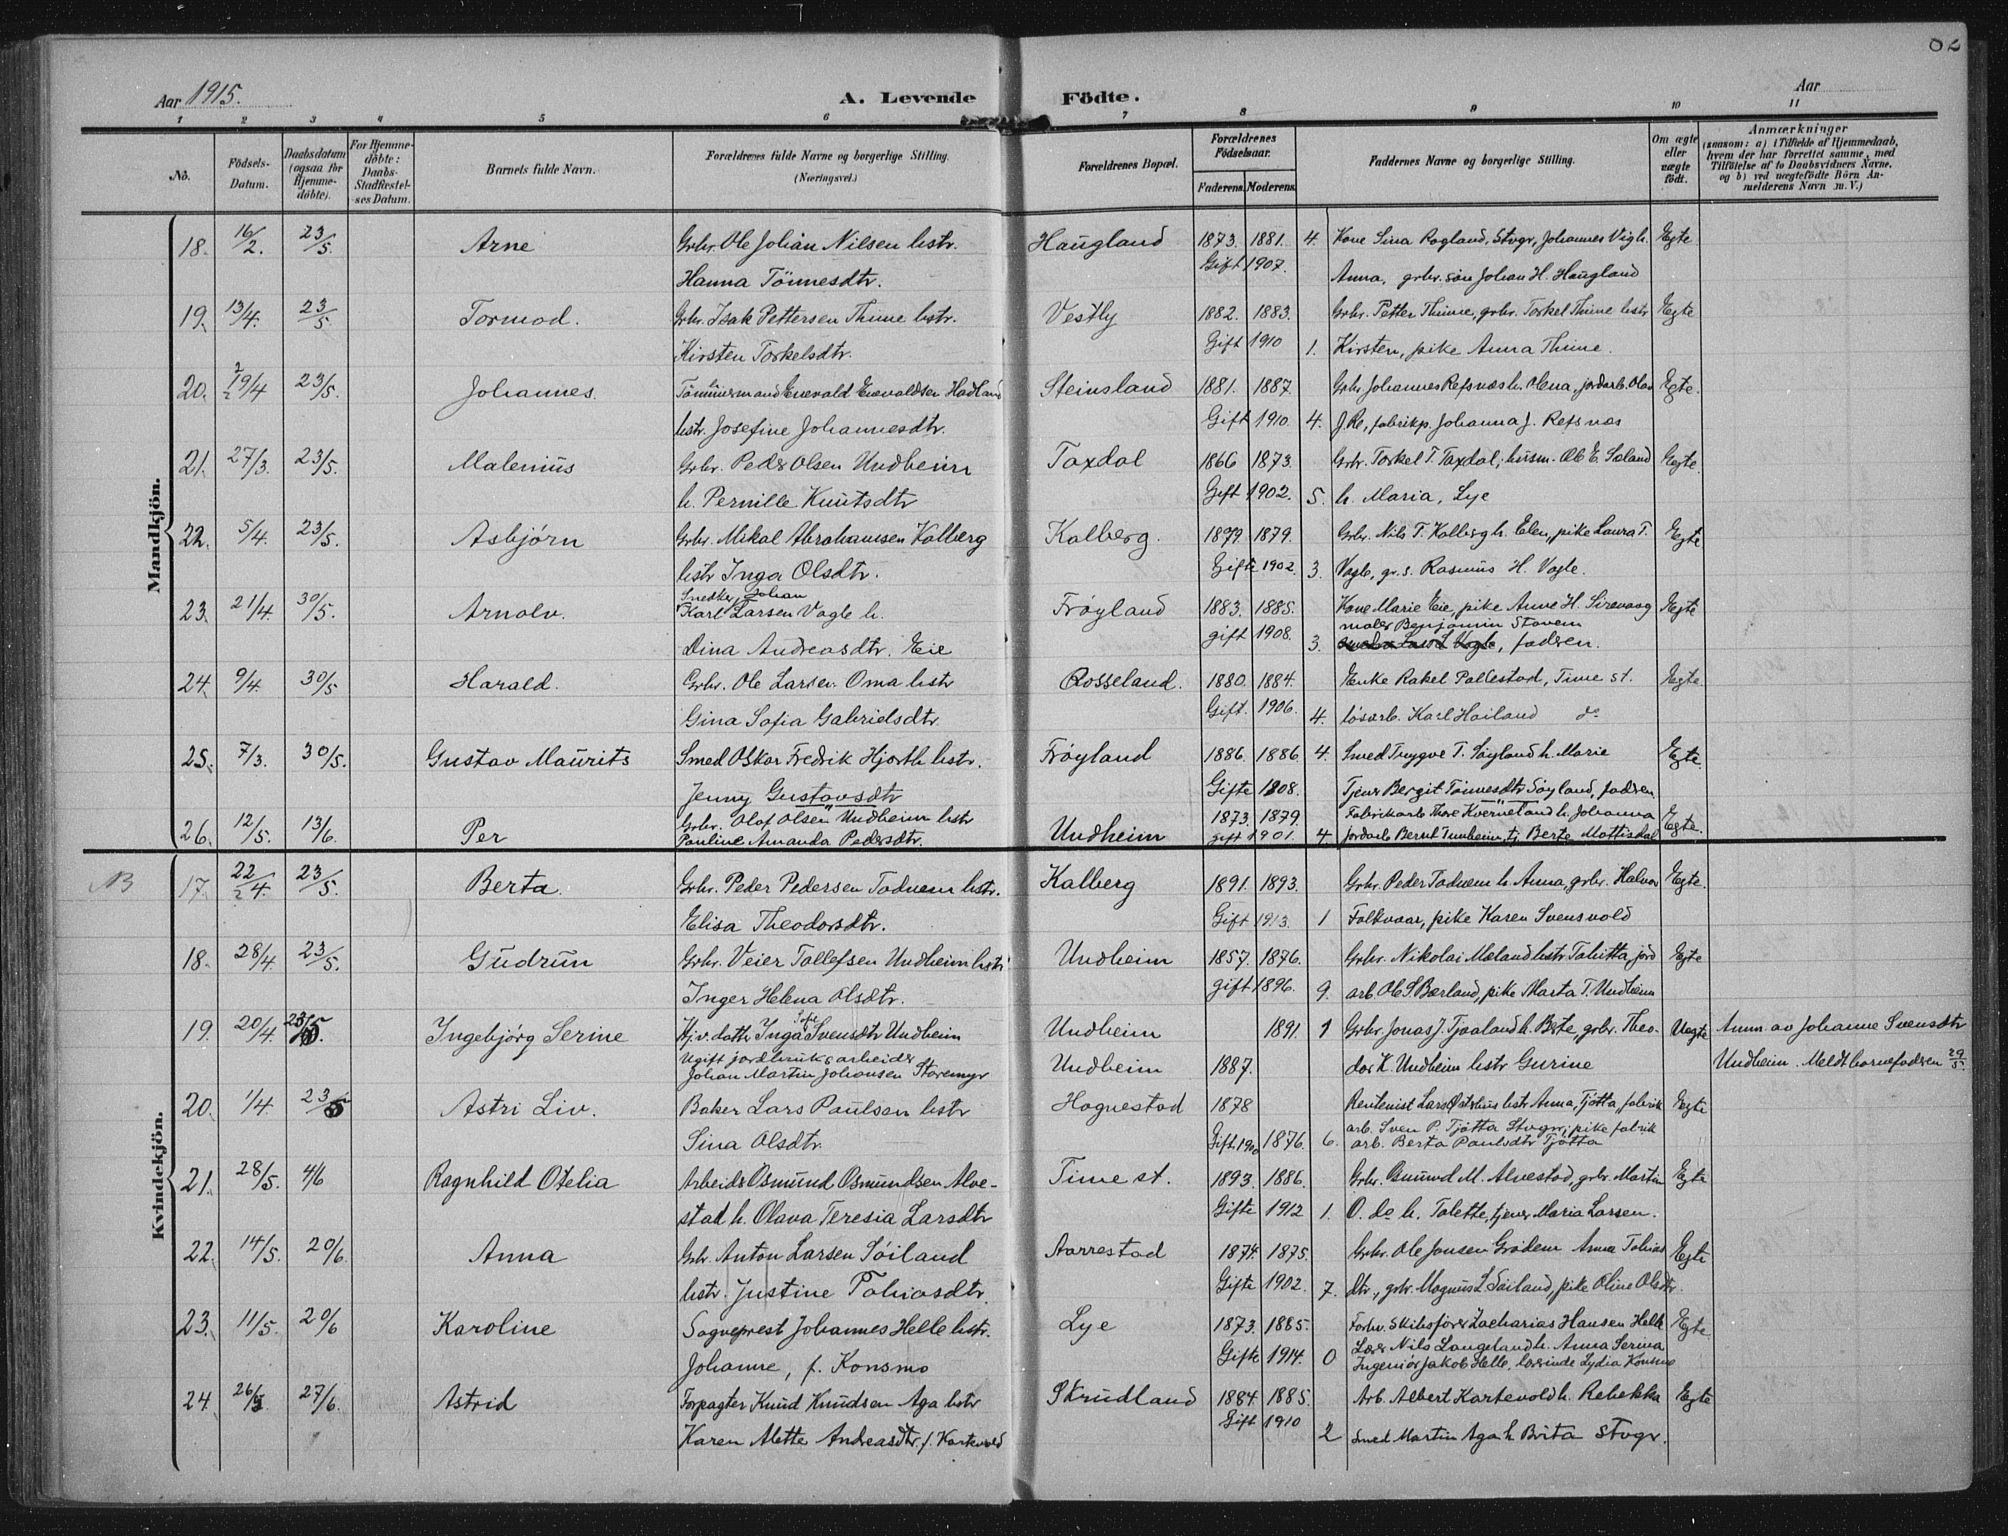 82
Aar 1915.
A. Levende Födte.
Aar
1 2 3 4 5 6 7 8 9 10 11
No.
Födsels-Datum.
Daabsdatum (ogsaa for Hjemme-döbte).
For Hjemme-döbte: Daabs-Stadfæstel-ses Datum.
Barnets fulde Navn.
Forældrenes fulde Navne og borgerlige Stilling. (Næringsvei.)
Forældrenes Bopæl.
Forældrenes Födselsaar.
Faderens. Moderens.
Faddernes Navne og borgerlige Stilling.
Om ægte eller uægte födt.
Anmærkninger
(saasom: a) i Tilfælde af Hjemmedaab, hvem der har forrettet samme, med Tilföielse af to Daabsvidners Navne, og b) ved uægtefödte Börn An-melderens Navn m. V.)
Mandkjön.
18. 16/2. 23/5. Arne Grbr. Ole Johan Nilsen hstr. Haugland 1873. 1881. 4. Kone Sina Rogland, Stvgr, Johannes Vigh. Egte
Hanna Tönnesdtr. Gift 1907. Anna, grbr. sön Johan H. Haugland
19. 13/4. 23/5 Tormod. Grbr. Isak Pettersen Thime hstr. Vestly 1882. 1883. Grbr. Petter Thime, grbr. Torkel Thime hstr Egte
Kirsten Torkelsdtr. Gift 1910 1. Kirsten, pike Anna Thime.
20. 19/4 23/5. Johannes. Tömmermand Enevald Enevaldsen Hadland Steinsland 1881. 1887. Grbr. Johannes Refsnæs h. Olena, jordarb. Olav Egte.
hstr. Josefine Johannesdtr. Gift 1910. 4. J. Re, fabrikp. Johanna J. Refsnæs
21. 27/3. 23/5. Malenius Grbr. Peder Olsen Undheim Taxdal 1866 1873. Grbr. Torkel T. Taxdal, husm. Ole E. Sæland Egte.
h. Pernille Knutsdtr Gift 1902. 5. h. Maria, Lye
22. 5/4. 23/5. Asbjørn Grbr. Mikal Abrahamsen Kalberg Kalberg. 1879. 1879. Grbr. Nils T. Kalberg h. Elen, pike Laura T. Egte
hstr Inga Olsdtr. Gift 1902. 3. Vagle, gr. s. Rasmus H. Vagle.
23. 21/4. 30/5. Arnolv. Snedker, Johan
Karl Larsen Vagle h. Frøyland 1883. 1885. Kone Marie Eie, pike Anne H. Sirevaag Egte
Dina Andreasdtr. Eie gift 1908. 3. maler Benjamin Stavem, fadren.
24. 9/4. 30/5 Harald. Grbr. Ole Larsen Oma hstr Rosseland. 1880. 1884. Enke Rakel Pollestad, Time st. Egte.
Gina Sofia Gabrielsdtr. Gift. 1906. 4. løsarb. Karl Hailand do
25. 7/3. 30/5. Gustav Maurits Smed Oskar Fredrik Hjorth hstr. Frøyland 1886. 1886. 4. Smed Trygve T. Søyland h. Marie Egte.
Jenny Gustavsdtr Gifte 1808. Tjener Bergit Tönnesdtr Søyland, fadren
26. 12/5. 13/6. Per Grbr. Olof Olsen Undheim hstr Undheim 1873. 1879. Fabrikarb Thore Kverneland h. Johanna Egte.
Pauline Amanda Pedersdtr. gift 1901. 4. Jordarb Bernt Tunheim, tj Berte Mattisdal
Kvindekjön.
NB 17. 22/4. 23/5. Berta Grbr. Peder Pedersen Tadnem hstr. Kalberg 1891. 1893. Grbr. Peder Tadnem h. Anna, grbr. Halvor Egte.
Elisa Theodorsdtr. Gift 1913. 1 Folkvaar, pike Karen Svensvold
18. 28/4. 23/5. Gudrun Grbr. Veier Tollefsen Undheim hstr Undheim 1857. 1876. Grbr. Nikolai Mæland hstr Tabitta, jord Egte
Inger Helena Olsdtr. gift 1896. 9. arb. Ole S Bærland, pike Marta T. Undheim
19. 20/4. 23/5. Ingebjørg Serine Hjv. datter Inga Sofie Svensdtr Undheim Undheim 1891. 1 Grbr. Jonas J. Tjaaland h. Berte, grbr. Theo- Uegte Anm. av Johanne Svensdtr
Ugift jordbruksarbeider Johan Martin Johansen Storemyr Undheim 1887. dor K. Undheim hstr Gurine Undheim. Meldt barnefadren 29/5.
20. 1/4. 23/5 Astri Liv. Baker Lars Paulsen hstr Hognestad 1878 Rentenist Lars Østhus hstr Anna, Tjötta, fabrik Egte
Sina Olsdtr. Gift. 1900 1876. 6. arb. Sven P. Tjötta Stvgr, pike fabrik
arb. Berta Paulsdtr Tjötta
21. 28/5. 4/6 Ragnhild Otelia Arbeider Osmund Osmundsen Alve- Time st. 1893. 1886. Grbr. Osmund M. Alvestad, grbr. Martin Egte
stad h. Olava Teresia Larsdtr Gifte 1912 1. O. do h. Talette, tjener Maria Larsen.
22. 14/5. 20/6. Anna Grbr. Anton Larsen Söiland Aarrestad 1874. 1875. Grbr. Ole Jonsen Grödem Anna Tobias Egte
hstr. Justine Tobiasdtr. Gifte 1902. 7. dtr., grbr. Magnus L Söiland, pike Oline Olsdtr.
23. 11/5. 20/6 Karoline Sogneprest Johannes Helle hstr. Lye 1873. 1885. Forhv. Skibsfører Zacharias Hansen Helle Egte.
Johanne, f. Konsmo Gifte 1914. 0 Lærer Nils Langeland h. Anna Serina
Ingeniör Jakob Helle, lærerinde Lydia Konsmo
24. 26/5 27/6. Astrid Forpagter Knud Knudsen Aga hstr Skrudland 1884. 1885. Arb. Albert Kartevold h. Rebekka Egte
Karen Alette Andreasdtr. f. Kartevold Gift 1910 2 Smed Martin Aga h Brita Stvgr.